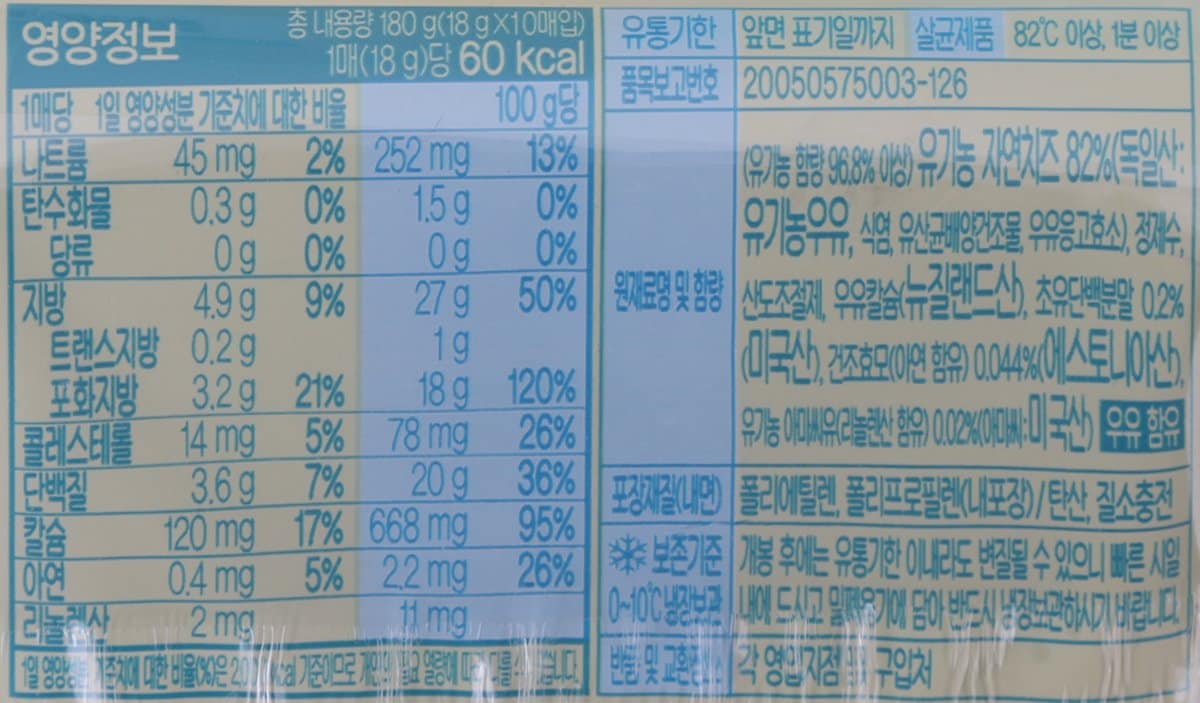 영양정보
총 내용량 180 g(18 g X 10매입)
1매(18 g)당 60 kcal
1매당 1일 영양성분 기준치에 대한 비율 100 g당
나트륨 45 mg 2% 252 mg 13%
탄수화물 0.3 g 0% 1.5 g 0%
당류 0 g 0% 0 g 0%
지방 4.9 g 9% 27 g 50%
트랜스지방 0.2 g 1 g
포화지방 3.2 g 21% 18 g 120%
콜레스테롤 14 mg 5% 78 mg 26%
단백질 3.6 g 7% 20 g 36%
칼슘 120 mg 17% 668 mg 95%
아연 0.4 mg 5% 2.2 mg 26%
리놀렌산 2 mg 11 mg
1일 영양성분 기준치에 대한 비율(%)은 2,000 kcal 기준이므로 개인의 필요 열량에 따라 다를 수 있습니다.
유통기한 앞면 표기일까지 살균제품 82℃ 이상, 1분 이상
품목보고번호 20050575003-126
원재료명 및 함량
(유기농 함량 96.8% 이상) 유기농 자연치즈 82%(독일산:
유기농우유, 식염, 유산균배양건조물, 우유응고효소), 정제수,
산도조절제, 우유칼슘(뉴질랜드산), 초유단백분말 0.2%
(미국산), 건조효모(아연 함유) 0.044%(에스토니아산),
유기농 아마씨유(리놀렌산 함유) 0.02%(아마씨:미국산) 우유 함유
포장재질(내면) 폴리에틸렌, 폴리프로필렌(내포장) / 탄산, 질소충전
보존기준 개봉 후에는 유통기한 이내라도 변질될 수 있으니 빠른 시일
0~10℃ 냉장보관 내에 드시고 밀폐용기에 담아 반드시 냉장보관하시기 바랍니다.
반품 및 교환장소 각 영업지점 및 구입처